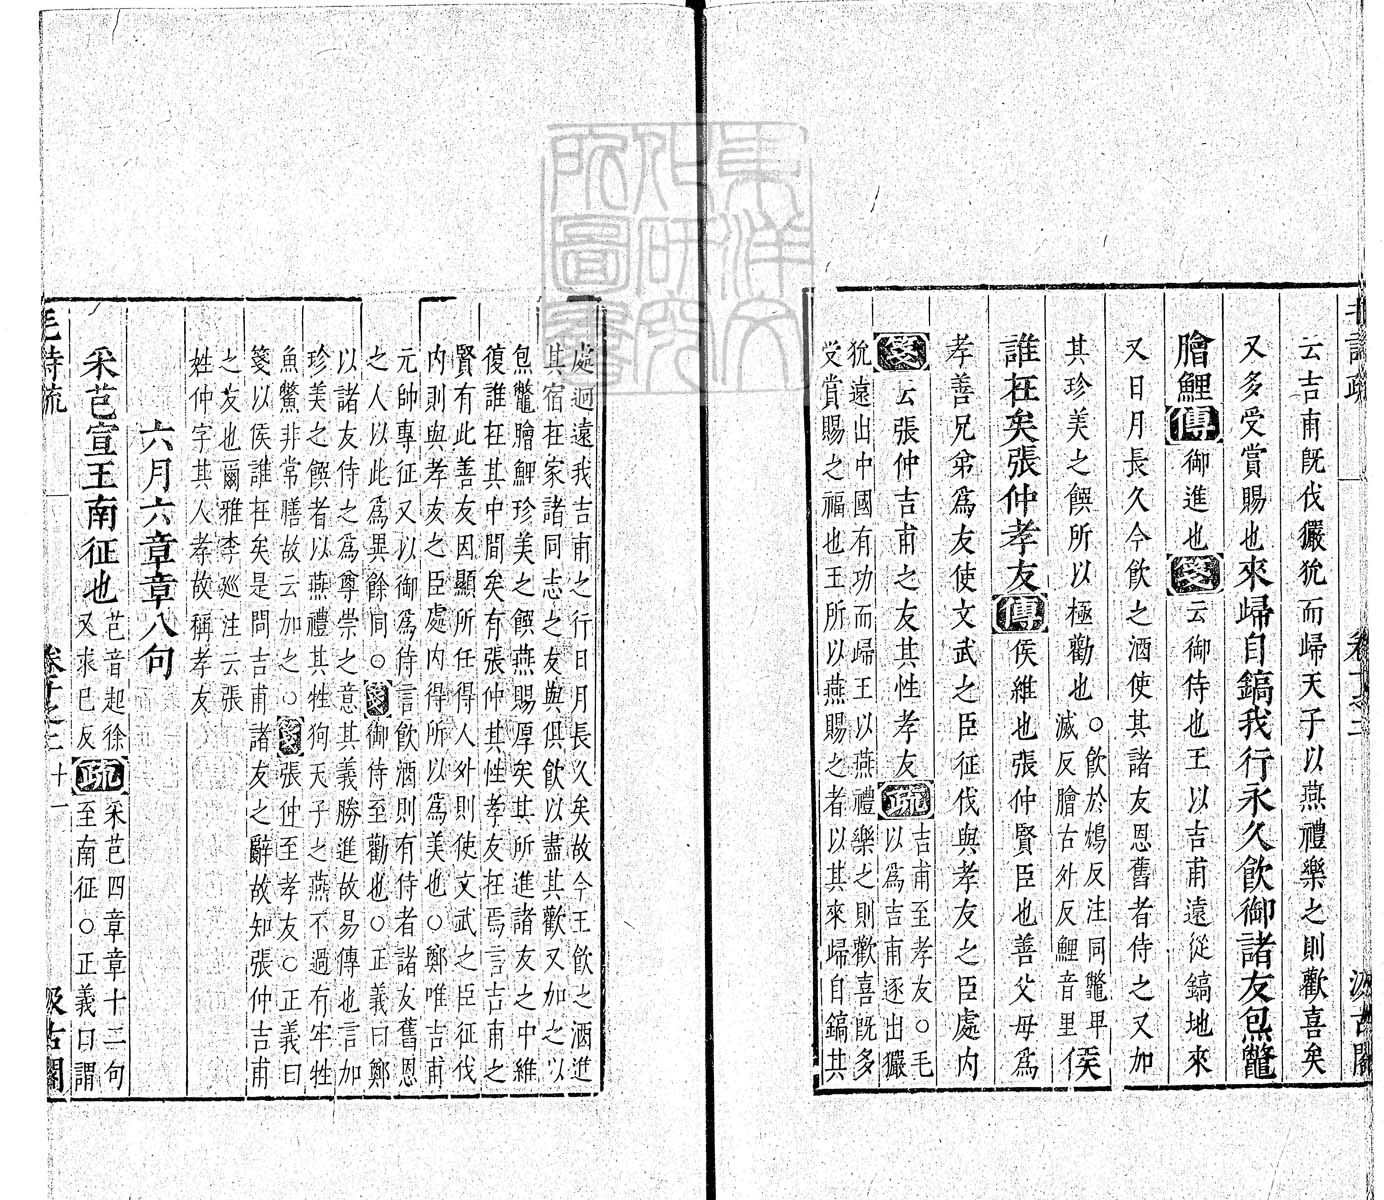 云吉甫既伐玁狁而歸天子以燕禮樂之則歡喜矣
又多受賞賜也來歸自鎬我行永久飲御諸友炰鼈
膾鯉傳御進也箋云御侍也王以吉甫遠從鎬地來
又日月長久今飲之酒使其諸友恩舊者侍之又加
其珍美之饌所以極勸也○飲於鴆反注同鼈卑
滅反膾古外反鯉音里侯
誰在矣張仲孝友傳侯維也張仲賢臣也善父母爲
孝善兄弟爲友使文武之臣征伐與孝友之臣處内
箋云張仲吉甫之友其性孝友疏吉甫至孝友○毛
以爲吉甫逐出玁
狁遠出中國有功而歸王以燕禮樂之則歡喜既多
受賞賜之福也王所以燕賜之者以其來歸自鎬其
處迥遠我吉甫之行日月長久矣故今王飲之酒進
其宿在家諸同志之友與俱飲以盡其歡又加之以
包鼈膾鯉珍美之饌燕賜厚矣其所進諸友之中維
復誰在其中間矣有張仲其性孝友在焉言吉甫之
賢有此善友因顯所任得人外則使文武之臣征伐
内則與孝友之臣處内得所以爲美也○鄭唯吉甫
元帥專征又以御爲侍言飲酒則有侍者諸友舊恩
之人以此爲異餘同○箋御侍至勸也○正義曰鄭
以諸友侍之爲尊崇之意其義勝進故易傳也言加
珍美之饌者以燕禮其牲狗天子之燕不過有牢牲
魚鱉非常膳故云加之○箋張仲至孝友○正義曰
箋以侯誰在矣是問吉甫諸友之辭故知張仲吉甫
之友也爾雅李巡注云張
姓仲字其人孝故稱孝友
六月六章章八句
采芑宣王南征也芑音起徐
又求巳反疏采芑四章章十二句
至南征○正義曰謂
毛詩疏 卷十之二 十一 汲古閣
東洋文化研究所圖書